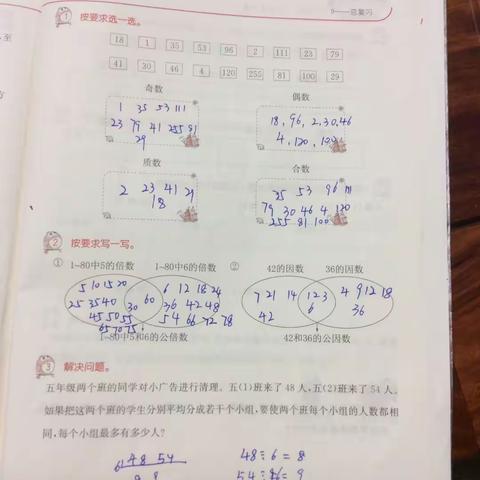 9——总复习
1 按要求选一选。
18 1 35 53 96 2 111 23 79
41 30 46 4 120 255 81 100 29
奇数 偶数
1 35 53 111
23 79 41 255 81
29
18, 96, 2, 30, 46
4, 120, 100
质数 合数
2 23 41 29
18
35 53 96 111
79 30 46 4 120
255 81 100
2 按要求写一写。
① 1~80中5的倍数 1~80中6的倍数
5 10 15 20
25 35 40
45 50 55
65 70 75
30 60
6 12 18 24
36 42 48
54 66 72 78
1~80中5和6的公倍数
② 42的因数 36的因数
7 21 14
42
1 2 3
6
4 9 12 18
36
42和36的公因数
3 解决问题。
五年级两个班的同学对小广告进行清理。五(1)班来了48人,五(2)班来了54人。
如果把这两个班的学生分别平均分成若干个小组,要使两个班每个小组的人数都相
同,每个小组最多有多少人?
6 48 54
8 9
48÷6=8
54÷6=9